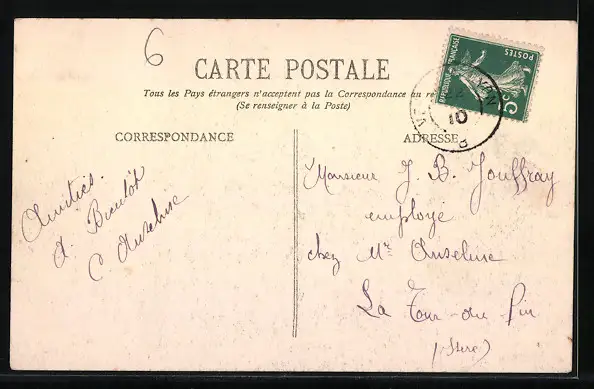 6
CARTE POSTALE
Tous les Pays étrangers n'acceptent pas la Correspondance au
(Se renseigner à la Poste)
CORRESPONDANCE
ADRESSE
RÉPUBLIQUE FRANÇAISE
POSTES
5c
10
Amitiés.
A. Bientôt
C Anselme
Monsieur J. B. Jouffray
employé
chez Mr Anselme
La Tour-du Pin
(Isère)